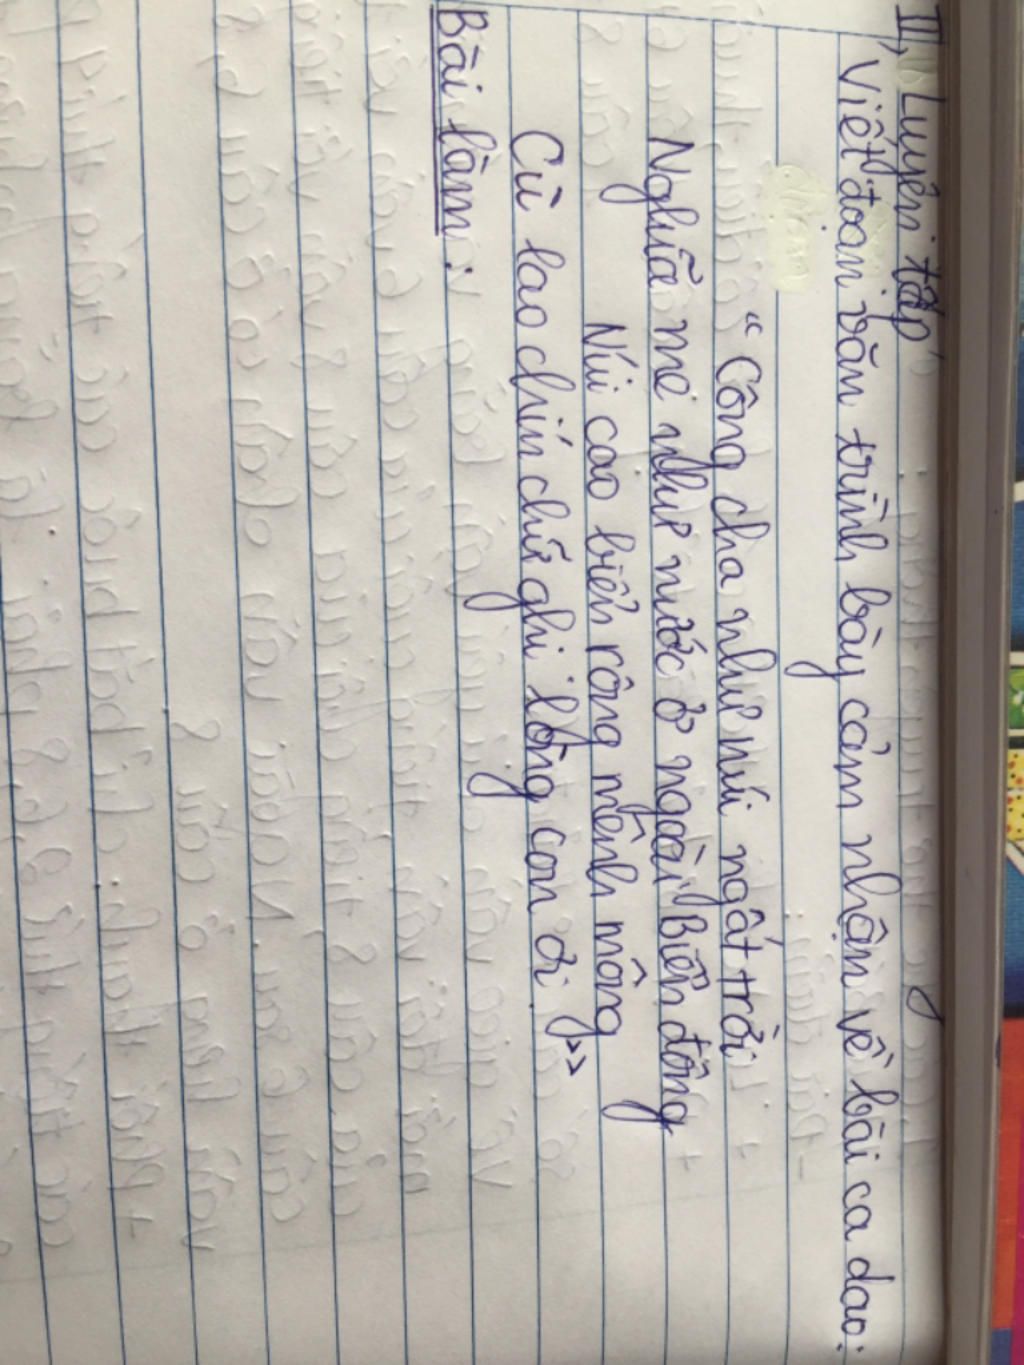 II, Luyện tập
Viết đoạn văn trình bày cảm nhận về bài ca dao:
"Công cha như núi ngất trời
Nghĩa mẹ như nước ở ngoài Biển đông
Núi cao biển rộng mênh mông
Cù lao chín chữ ghi lòng con ơi"
Bài làm: